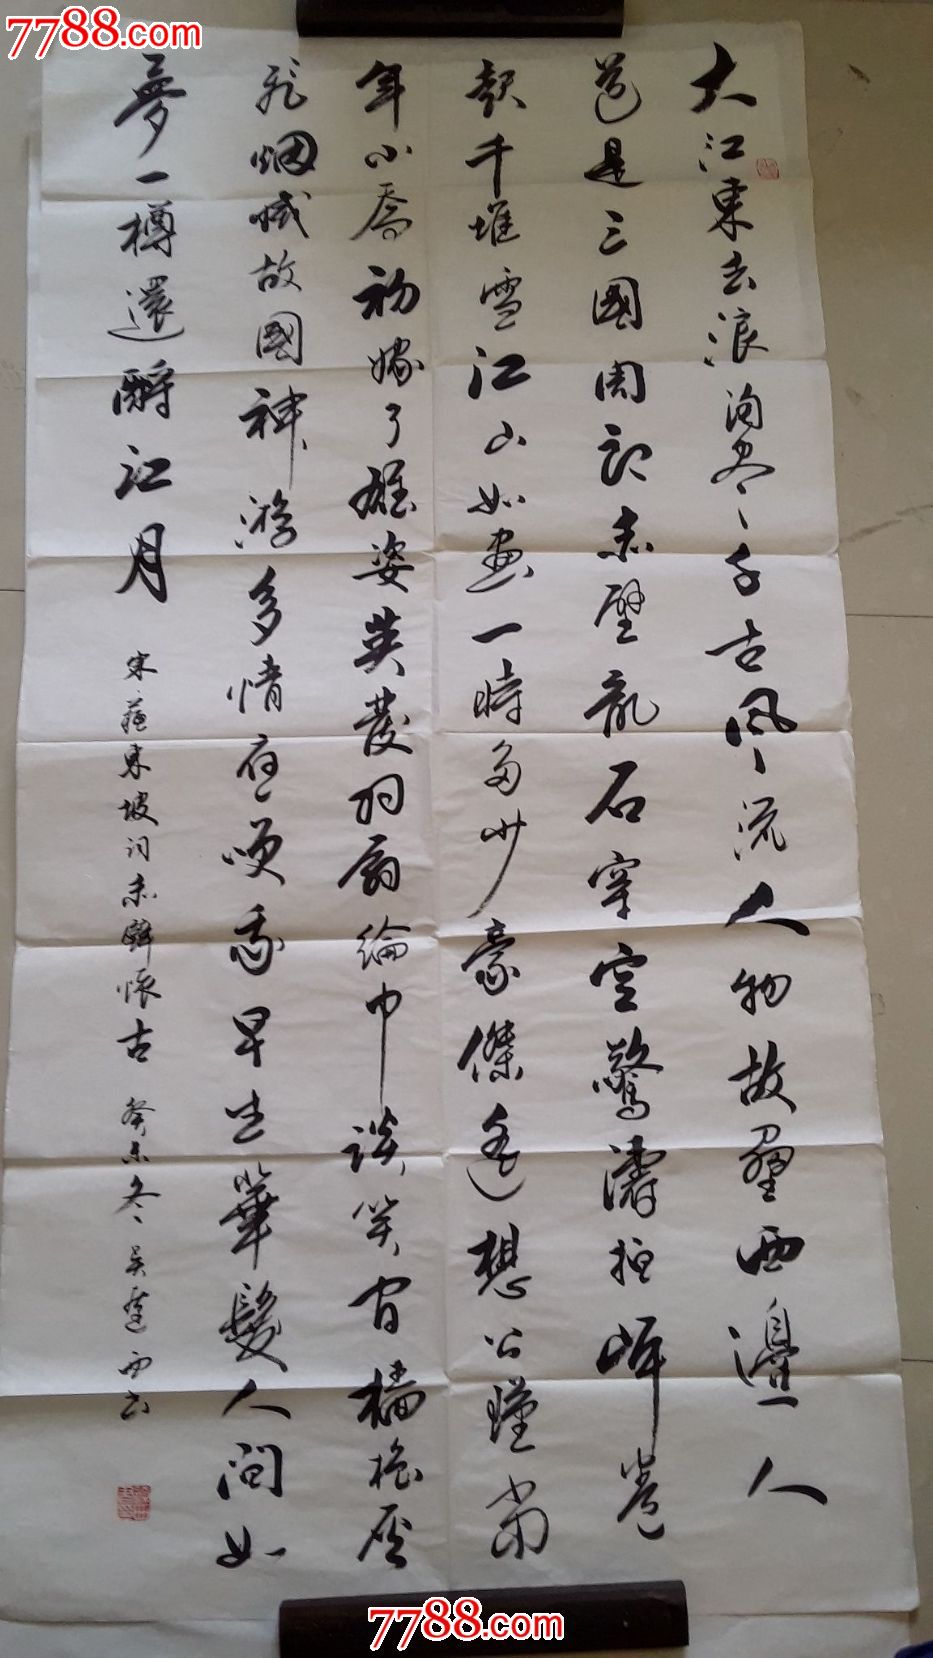 7788.com
7788.com
大江東去浪淘尽千古風流人物故壘西邊人
道是三國周郎赤壁亂石穿空驚濤拍岸卷
起千堆雪江山如畫一時多少豪傑遙想公瑾當
年小喬初嫁了雄姿英發羽扇綸巾談笑間檣櫓灰
飛烟滅故國神游多情應笑我早生華髮人間如
夢一樽還酹江月
宋蘇東坡词赤壁怀古 癸未冬吴
7788.com